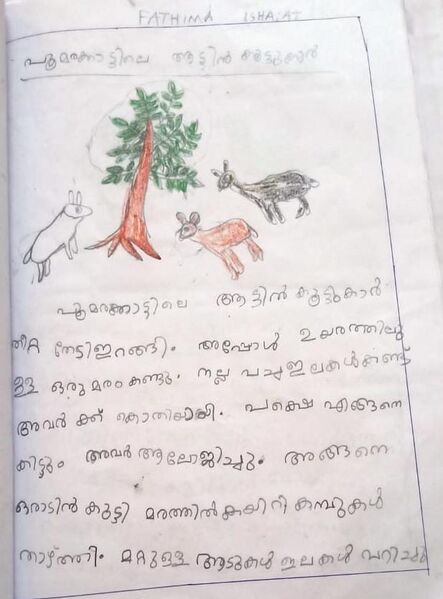 FATHIMA ISHAAT
പൂമരക്കാട്ടിലെ ആട്ടിൻ കൂട്ടുകാർ
പൂമരക്കാട്ടിലെ ആട്ടിൻ കൂട്ടുകാർ
തീറ്റ തേടിഇറങ്ങി. അപ്പോൾ ഉയരത്തിലു
ള്ള ഒരുമരം കണ്ടു. നല്ല പച്ചഇലകൾകണ്ട്
അവർ ക്ക് കൊതിയായി. പക്ഷെ എങ്ങനെ
കിട്ടും അവർ ആലോജിച്ചു. അങ്ങനെ
ഒരാടിൻ കുട്ടി മരത്തിൽകയറി കമ്പുകൾ
താഴ്ത്തി. മറ്റുള്ള ആടുകൾ ഇലകൾ പറിച്ചു